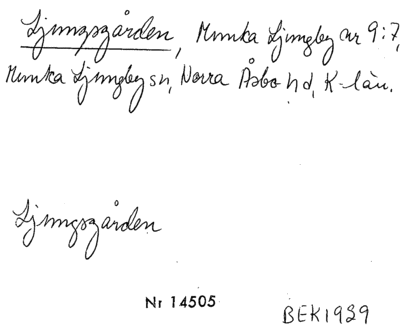 Ljungsgården, Munka Ljungby nr 9:7,
Munka Ljungby sn, Norra Åsbo hd, K-län.
Ljungsgården
Nr 14505
BEK1939